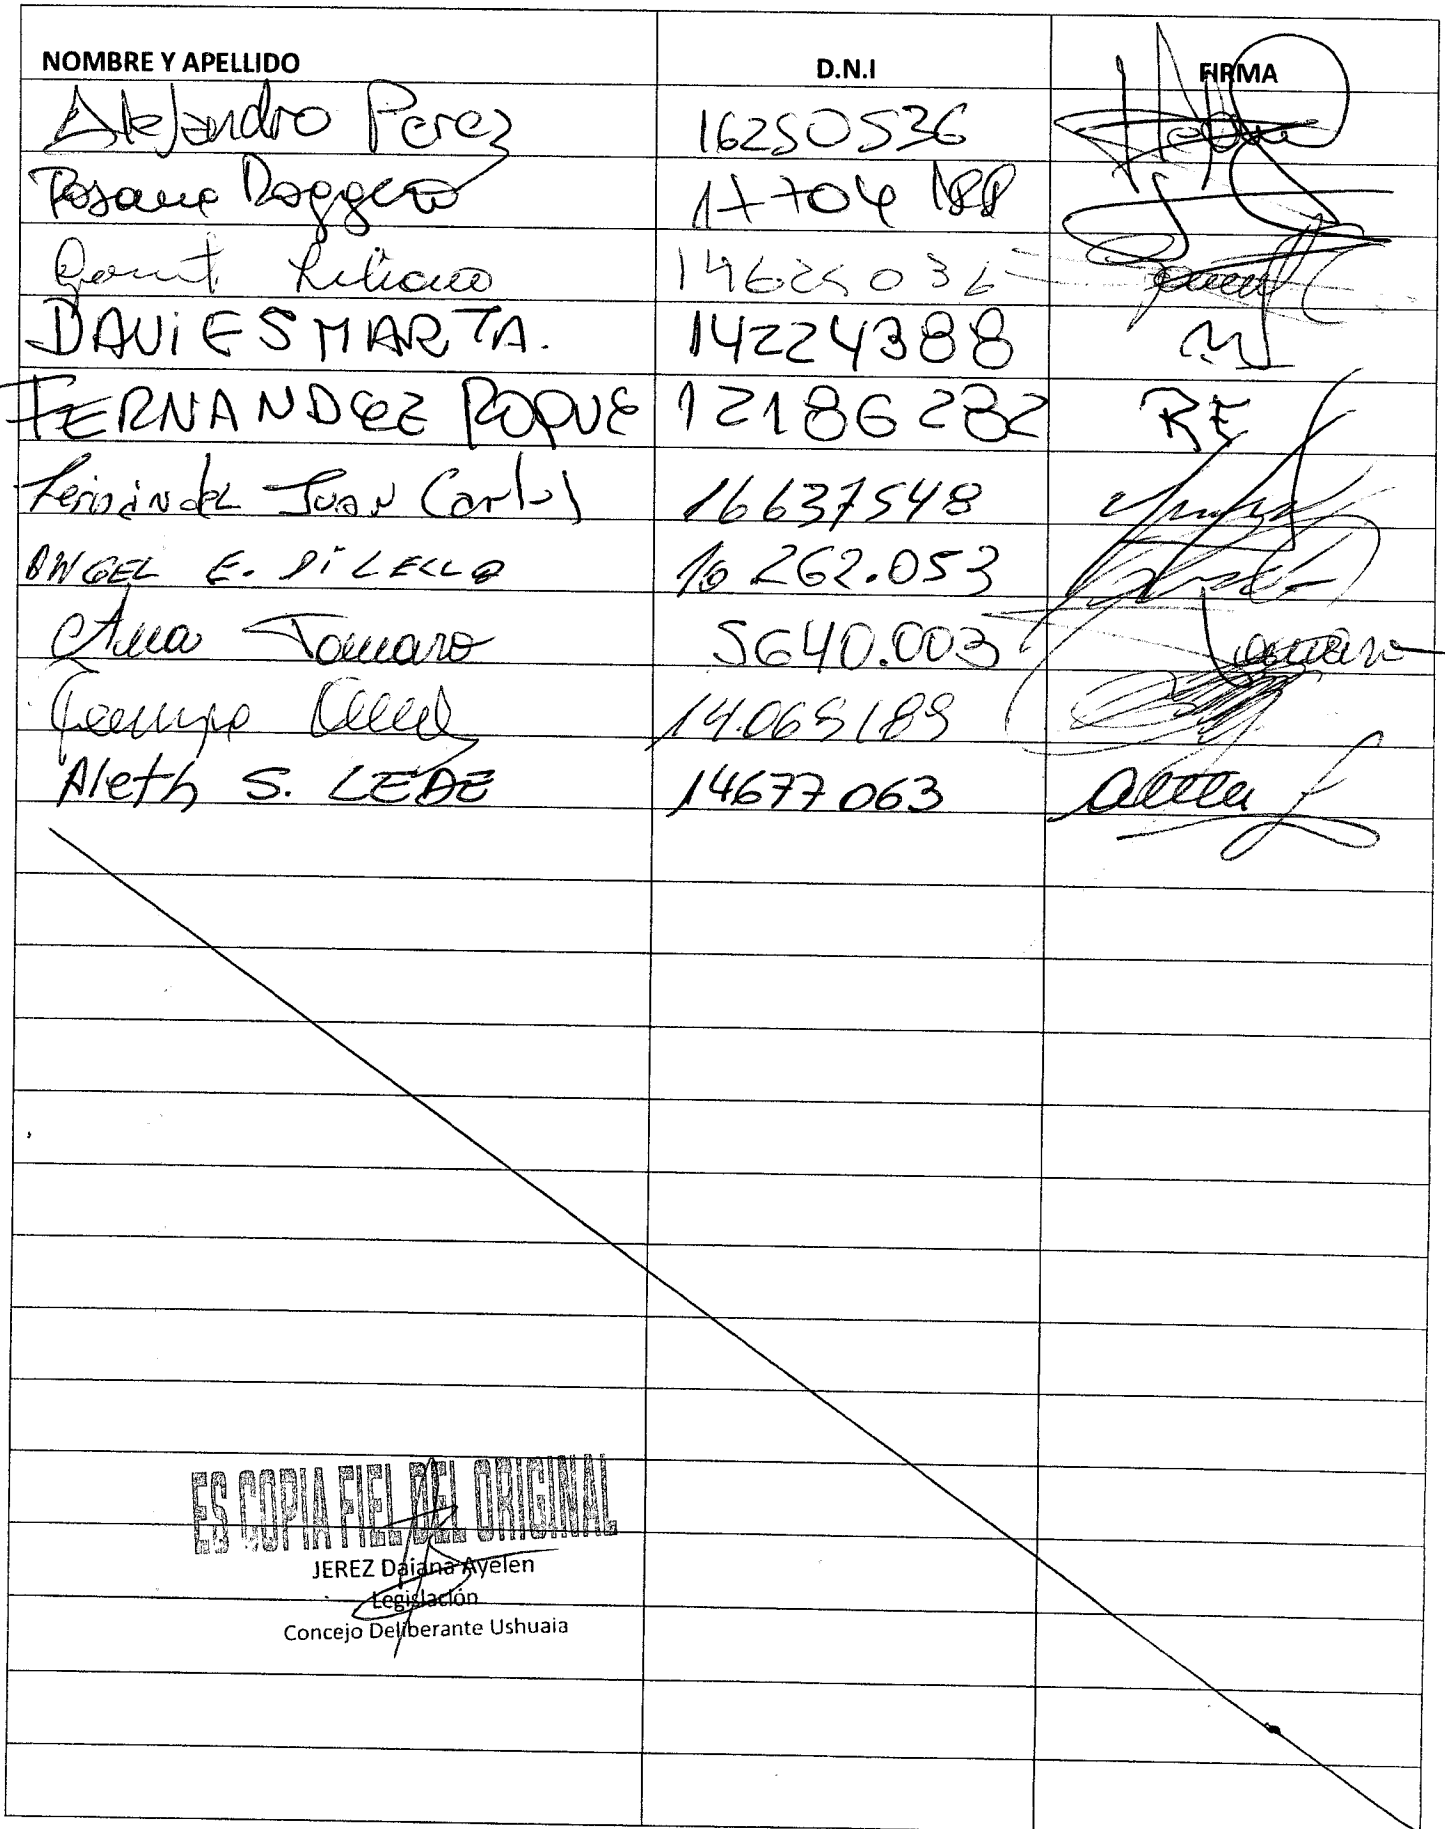 NOMBRE Y APELLIDO D.N.I FIRMA
Alejandro Perez 16250536
Rosana Roggero 17704188
Liliana
DAViES MARTA. 14224388
FERNANDEZ ROQUE 12186282 RF
Juan Carlos 16637548
ANGEL E. DiLELLO 10 262.053
Ana Tomaro 5640.003
14.069189
Aleth S. LEDE 14677063
ES COPIA FIEL DEL ORIGINAL
JEREZ Daiana Ayelen
Legislación
Concejo Deliberante Ushuaia